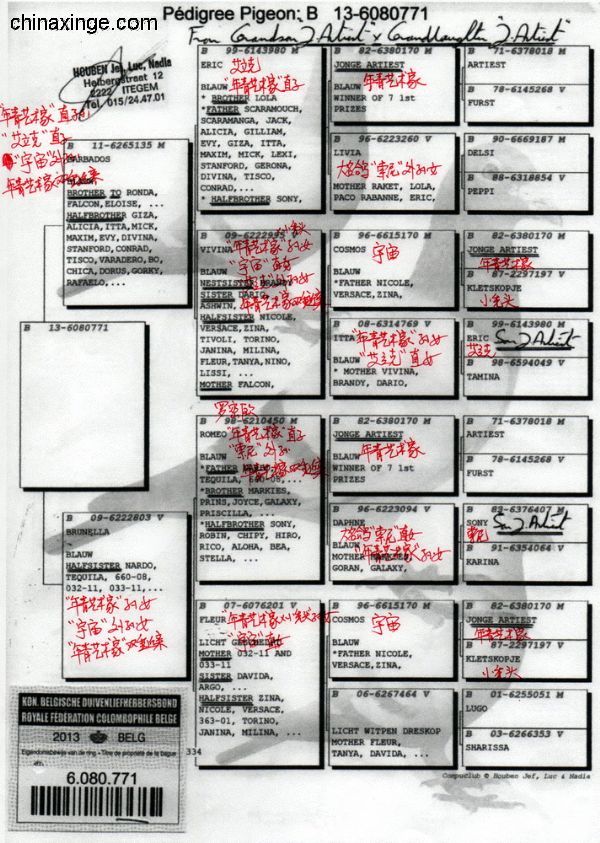 chinaxinge.com
Pédigree Pigeon: B 13-6080771
From Grandson "J. Artist" x Granddaughter "J. Artist"
HOUBEN Jef, Luc, Nadia
Helbergstraat 12
2222 ITEGEM
Tel. 015/24.47.01
"年青艺术家"直孙
"艾立克"直子
"宇宙"外孙
年青艺术家双重近亲
B 11-6265135 M
BARBADOS
BLAUW
BROTHER TO RONDA,
FALCON,ELOISE, ...
HALFBROTHER GIZA,
ALICIA,ITTA,MICK,
MAXIM,EVY,DIVINA,
STANFORD,CONRAD,
TISCO,VARADERO,BO,
CHICA,DORUS,GORKY,
RAFAELO,...
B 13-6080771
B 09-6222803 V
BRUNELLA
BLAUW
HALFSISTER NARDO,
TEQUILA, 660-08,
032-11, 033-11,...
"年青艺术家"孙女
"宇宙"外孙女
"年青艺术家"双重近亲
B 99-6143980 M
ERIC 艾立克
BLAUW "年青艺术家"直子
* BROTHER LOLA
*FATHER SCARAMOUCH,
SCARAMANGA, JACK,
ALICIA, GILLIAM,
EVY, GIZA, ITTA,
MAXIM, MICK, LEXI,
STANFORD, GERONA,
DIVINA, TISCO,
CONRAD,...
* HALFBROTHER SONY,
B 09-6222995 V
VIVINA "年青艺术家"
"宇宙"直女
BLAUW
NESTSISTER
SISTER DARIO,
ASHWIN,
HALFSISTER NICOLE,
VERSACE,ZINA,
TIVOLI, TORINO,
JANINA, MILINA,
FLEUR,TANYA,NINO,
LISSI, ...
MOTHER FALCON,
B 98-6210450 M
ROMEO "年青艺术家"直子
"索尼"外孙
BLAUW
*FATHER NARDO,
TEQUILA, 660-08,...
*BROTHER MARKIES,
PRINS,JOYCE,GALAXY,
PRISCILLA, ...
*HALFBROTHER SONY,
ROBIN, CHIPY, HIRO,
RICO, ALOHA, BEA,
STELLA, ...
B 07-6076201 V
FLEUR "年青艺术家x小秃头"外孙女
"宇宙"直女
LICHT
MOTHER 032-11 AND
033-11
SISTER DAVIDA,
ARGO, ...
HALFSISTER ZINA,
NICOLE, VERSACE,
363-01, TORINO,
JANINA, MILINA, ...
B 82-6380170 M
JONGE ARTIEST
年青艺术家
BLAUW
WINNER OF 7 1st
PRIZES
B 96-6223260 V
LIVIA
大哈哈"索尼"外孙女
MOTHER RAKET, LOLA,
PACO RABANNE, ERIC,
B 96-6615170 M
COSMOS 宇宙
BLAUW
*FATHER NICOLE,
VERSACE,ZINA,
B 08-6314769 V
ITTA "年青艺术家"孙女
"艾立克"直女
BLAUW
* MOTHER VIVINA,
BRANDY, DARIO,
B 82-6380170 M
JONGE ARTIEST
年青艺术家
BLAUW
WINNER OF 7 1st
PRIZES
B 96-6223094 V
DAPHNE
"索尼"直女
BLAUW
"年青艺术家"孙女
GORAN, GALAXY,
B 96-6615170 M
COSMOS 宇宙
BLAUW
*FATHER NICOLE,
VERSACE,ZINA,
B 06-6267464 V
LICHT WITPEN DRESKOP
MOTHER FLEUR,
TANYA, DAVIDA, ...
B 71-6378018 M
ARTIEST
B 78-6145268 V
FURST
B 90-6669187 M
DELSI
B 88-6318854 V
PEPPI
B 82-6380170 M
JONGE ARTIEST
年青艺术家
B 87-2297197 V
KLETSKOPJE
小秃头
B 99-6143980 M
ERIC Son J. Artist
艾立克
B 98-6594049 V
TAMINA
B 71-6378018 M
ARTIEST
B 78-6145268 V
FURST
B 89-6376407 M
SONY Son J. Artist
索尼
B 91-6354064 V
KARINA
B 82-6380170 M
JONGE ARTIEST
年青艺术家
B 87-2297197 V
KLETSKOPJE
小秃头
B 01-6255051 M
LUGO
B 03-6266353 V
SHARISSA
KON. BELGISCHE DUIVENLIEFHEBBERSBOND
ROYALE FÉDÉRATION COLOMBOPHILE BELGE
2013 BELG
Eigendomsbewijs van de ring - Titre de propriété de la bague
6.080.771
334
Compuclub © Houben Jef, Luc & Nadia